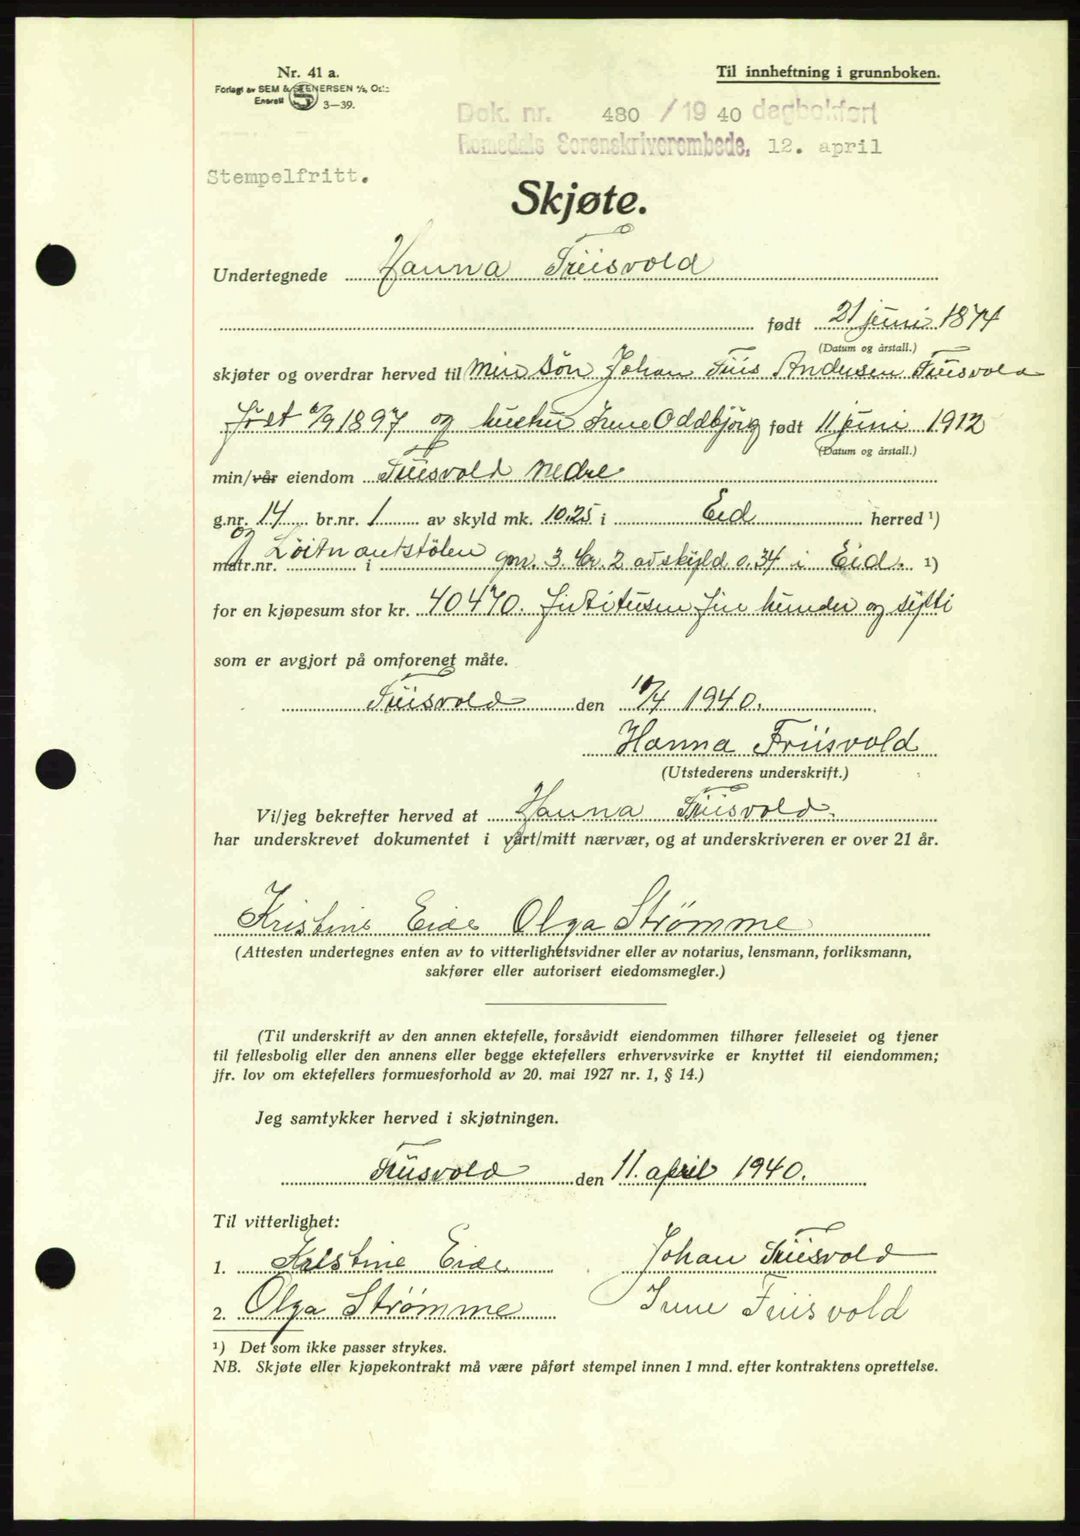 Nr. 41 a.
Forlagt av SEM & STENERSEN A/S, Oslo
Enerett 3—39.
Til innheftning i grunnboken.
Dok. nr. 480 /19 40 dagbokført
Romsdals Sorenskriverembede, 12. april
Stempelfritt.
Skjøte.
Undertegnede Hanna Friisvold
født 21 juni 1874
(Datum og årstall.)
skjøter og overdrar herved til min sön Johan Friis Andersen Friisvold
født 6/9 1897 og hustru Irene Oddbjörg født 11 juni 1912
(Datum og årstall.)
min/vår eiendom Friisvold nedre
g.nr. 14 br.nr. 1 av skyld mk. 10.25 i Eid herred ¹)
og Löitnantstölen gnr. 3. br. 2 av skyld 0.34 i Eid.
matr.nr. i ¹)
for en kjøpesum stor kr. 40470. firti tusen fire hundre og sytti
som er avgjort på omforenet måte.
Friisvold den 10/4 1940.
Hanna Friisvold
(Utstederens underskrift.)
Vi/jeg bekrefter herved at Hanna Friisvold.
har underskrevet dokumentet i vårt/mitt nærvær, og at underskriveren er over 21 år.
Kristine Eide Olga Strømme
(Attesten undertegnes enten av to vitterlighetsvidner eller av notarius, lensmann, forliksmann,
sakfører eller autorisert eiedomsmegler.)
(Til underskrift av den annen ektefelle, forsåvidt eiendommen tilhører felleseiet og tjener
til fellesbolig eller den annens eller begge ektefellers erhvervsvirke er knyttet til eiendommen;
jfr. lov om ektefellers formuesforhold av 20. mai 1927 nr. 1, § 14.)
Jeg samtykker herved i skjøtningen.
Friisvold den 11. april 1940.
Til vitterlighet:
1. Kristine Eide Johan Friisvold
2. Olga Strømme Irene Friisvold
¹) Det som ikke passer strykes.
NB. Skjøte eller kjøpekontrakt må være påført stempel innen 1 mnd. efter kontraktens oprettelse.